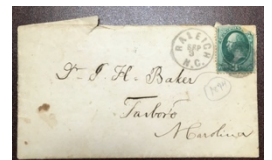 RALEIGH
SEP
N.C.
Dr J. H. Baker
Tarboro
N Carolina